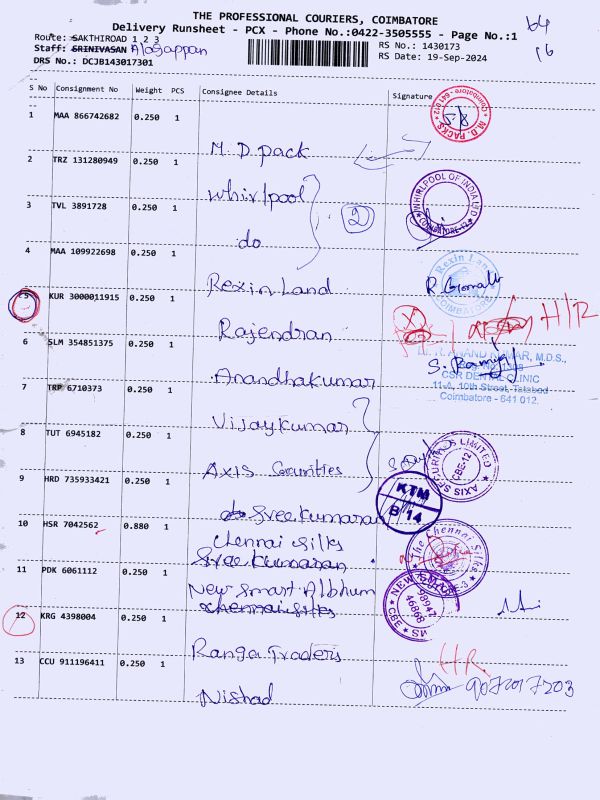 THE PROFESSIONAL COURIERS, COIMBATORE
Delivery Runsheet - PCX - Phone No.:0422-3505555 - Page No.:1
64
16
Route: SAKTHIROAD 1 2 3
RS No.: 1430173
Staff: SRINIVASAN Alagappan
RS Date: 19-Sep-2024
DRS No.: DCJB143017301
S No Consignment No Weight PCS Consignee Details Signature
1 MAA 866742682 0.250 1
M. D. pack
M.D. PACKS
2 TRZ 131280949 0.250 1
Whirlpool
WHIRLPOOL OF INDIA LTD
COIMBATORE-12
3 TVL 3891728 0.250 1
2
do
4 MAA 109922698 0.250 1
Rexin Land
Rexin Land
COIMBATORE
5 KUR 3000011915 0.250 1
H/R
Rajendran
6 SLM 354851375 0.250 1
Anandhakumar
Dr. R. ANAND KUMAR, M.D.S.,
CSR DENTAL CLINIC
11-A, 10th Street, Tatabad
Coimbatore - 641 012.
7 TRP 6710373 0.250 1
Vijaykumar
8 TUT 6945182 0.250 1
Axis Securities
AXIS SECURITIES LIMITED
CBE-12
9 HRD 735933421 0.250 1
do Sreekumaran
KTM
B 14
10 HSR 7042562 0.880 1
Chennai silks
Sree kumaran
The Chennai Silks
11 PDK 6061112 0.250 1
New Smart Albhum
chennai silks
98947
46868
12 KRG 4398004 0.250 1
Ranga Traders
H.R.
13 CCU 911196411 0.250 1
9072017203
Nishad